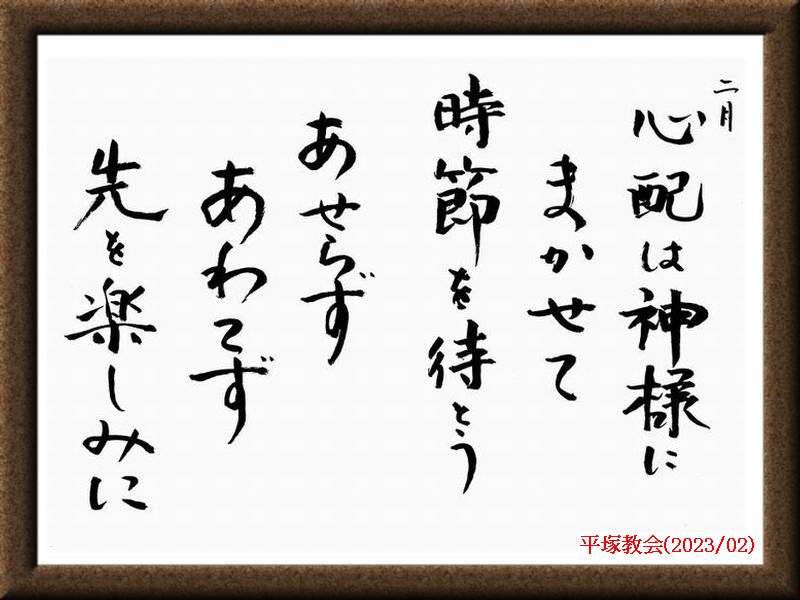 二月
心配は神様に
まかせて
時節を待とう
あせらず
あわてず
先を楽しみに
平塚教会(2023/02)